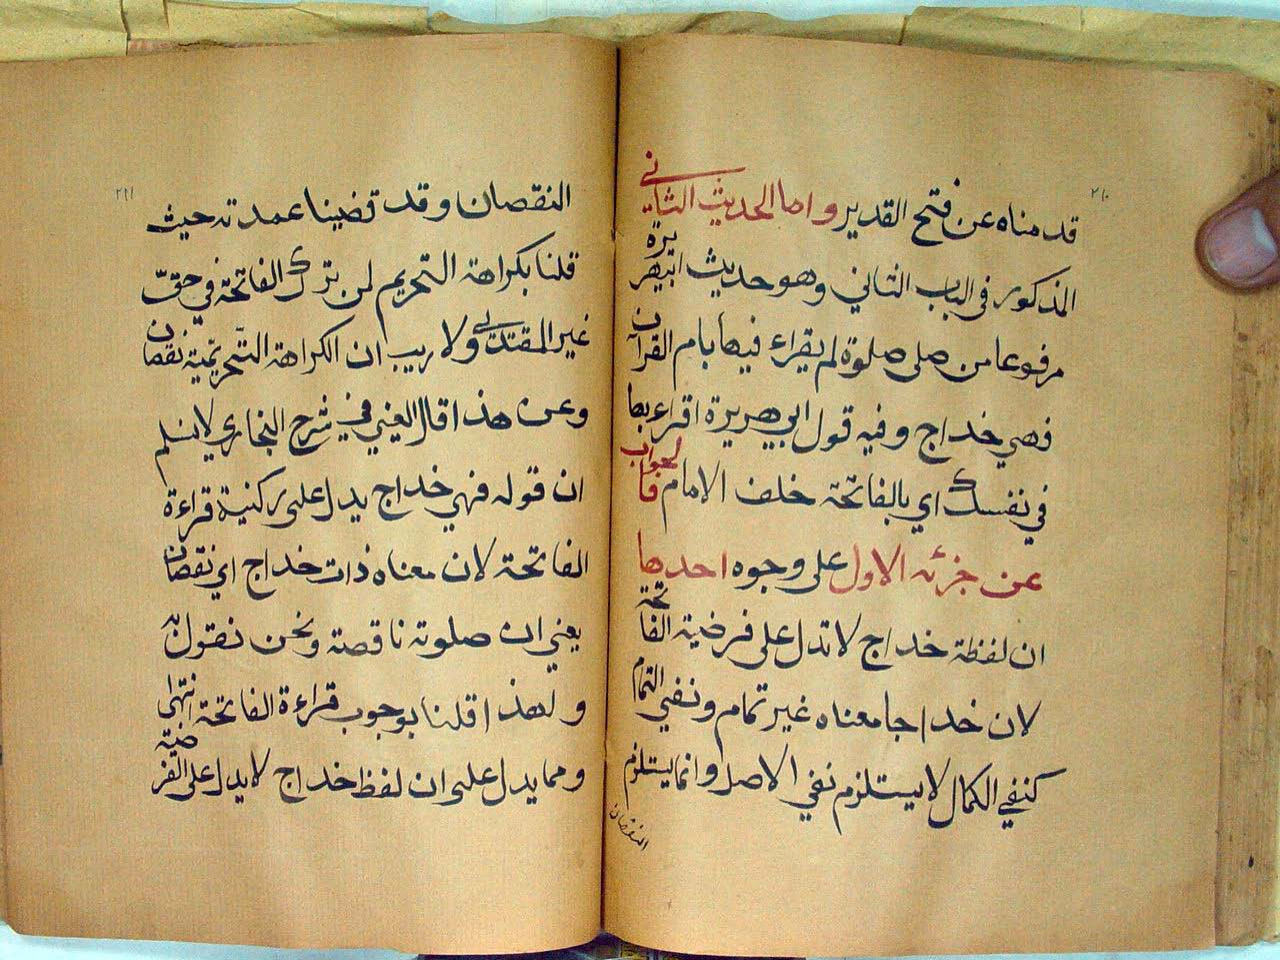 ٢١٠
قدمناه عن فتح القدير واما الحديث الثاني
المذكور في الباب الثاني وهو حديث ابيهريرة
مرفوعا من صلى صلوة لم يقراء فيها بام القرآن
فهي خداج وفيه قول ابي هريرة اقراء بها
في نفسك اي بالفاتحة خلف الامام فالجواب
عن جزئه الاول على وجوه احدها
ان لفظة خداج لا تدل على فرضية الفاتحة
لان خداجا معناه غير تمام ونفي التمام
كنفي الكمال لا يستلزم نفي الاصل وانما يستلزم
النقصان
٢١١
النقصان وقد قضينا عهدته حيث
قلنا بكراهة التحريم لمن ترك الفاتحة في حق
غير المقتدي ولا ريب ان الكراهة التحريمية نقصان
وعن هذا قال العيني في شرح البخاري لا نسلم
ان قوله فهي خداج يدل على ركنية قراءة
الفاتحة لان معناه ذات خداج اي نقصان
يعني ان صلوته ناقصة ونحن نقول به
ولهذا قلنا بوجوب قراءة الفاتحة انتهى
ومما يدل على ان لفظ خداج لا يدل على الفرضية